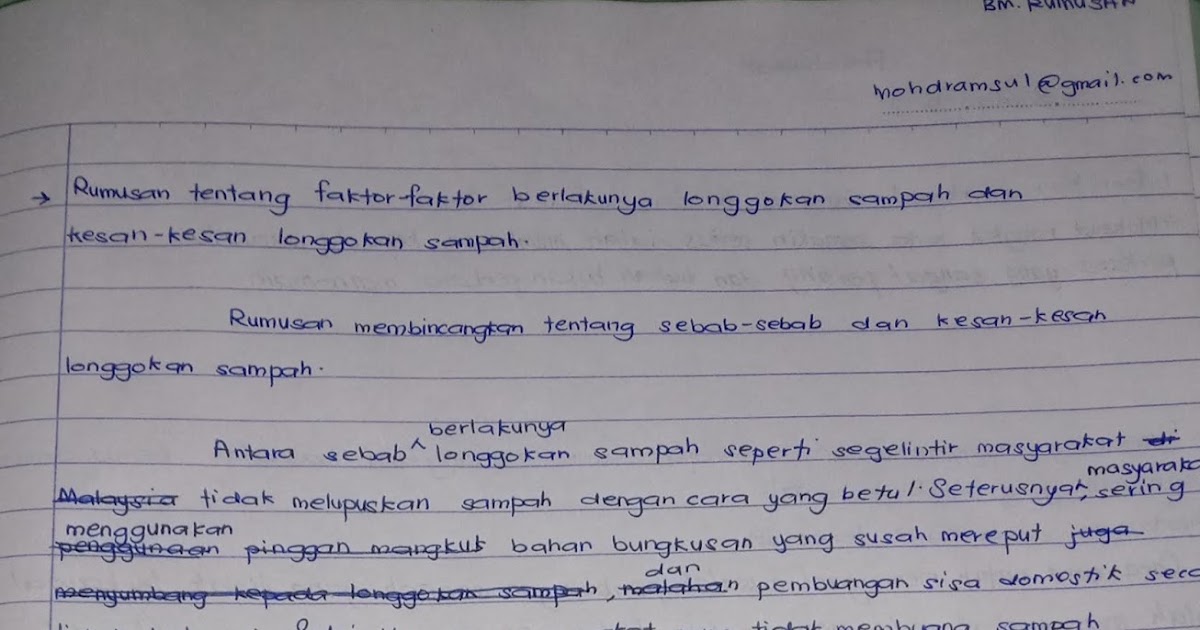 BM. RUMUSAN
mohdramsul@gmail.com
→ Rumusan tentang faktor-faktor berlakunya longgokan sampah dan
kesan-kesan longgokan sampah.
Rumusan membincangkan tentang sebab-sebab dan kesan-kesan
longgokan sampah.
berlakunya
Antara sebab ^ longgokan sampah seperti segelintir masyarakat di
masyaraka
Malaysia tidak melupuskan sampah dengan cara yang betul. Seterusnya^, sering
menggunakan
penggunaan pinggan mangkuk bahan bungkusan yang susah mereput juga
dan
menyumbang kepada longgokan sampah, malahan pembuangan sisa domostik seca
tidak membuang sampah